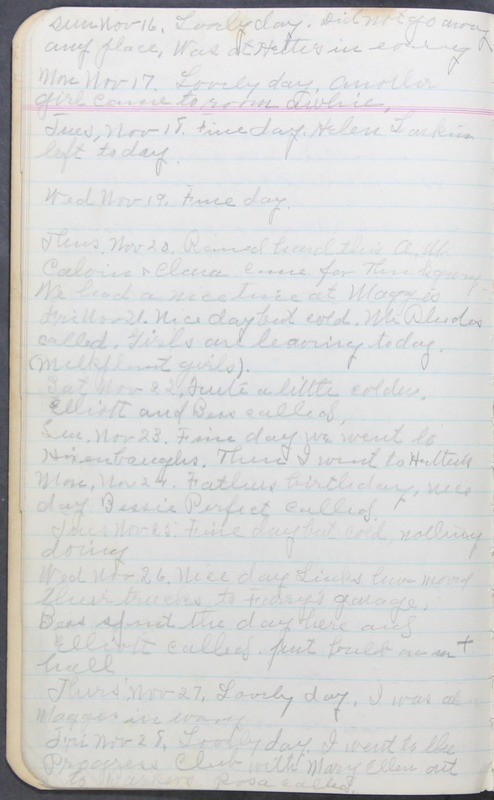 Sun Nov 16. Lovely day. Did not go away
any place, Was at Hettes in eveng
Mon Nov 17. Lovely day, another
girl came to room awhile,
Tues, Nov 18. Fine day. Helen
left today.
Wed Nov 19. Fine day.
Thus. Nov 20. Rained hard this A.M.
Calvin & Clara came for Thanksgivng
We had a nice time at Maggies
Fri Nov 21. Nice day but cold. Mr
called. Girls are leaving today.
(Milkplant girls).
Sat Nov 22, Quite a little colder.
Elliott and Bess called,
Sun, Nov 23. Fine day we went to
Then I went to Hettes
Mon, Nov 24. Fathers birthday, nice
day Bessie Perfect called.
Tues Nov 25. Fine day but cold, nothing
doing
Wed Nov 26, Nice day Links have moved
their trucks to garage,
Bess spent the day here and
Elliott called. put bulb in
hall
Thurs, Nov 27, Lovely day, I was at
Magges in
Fri Nov 28, Lovely day. I went to the
Progress Club with Mary Ellen out
to Rosa called.